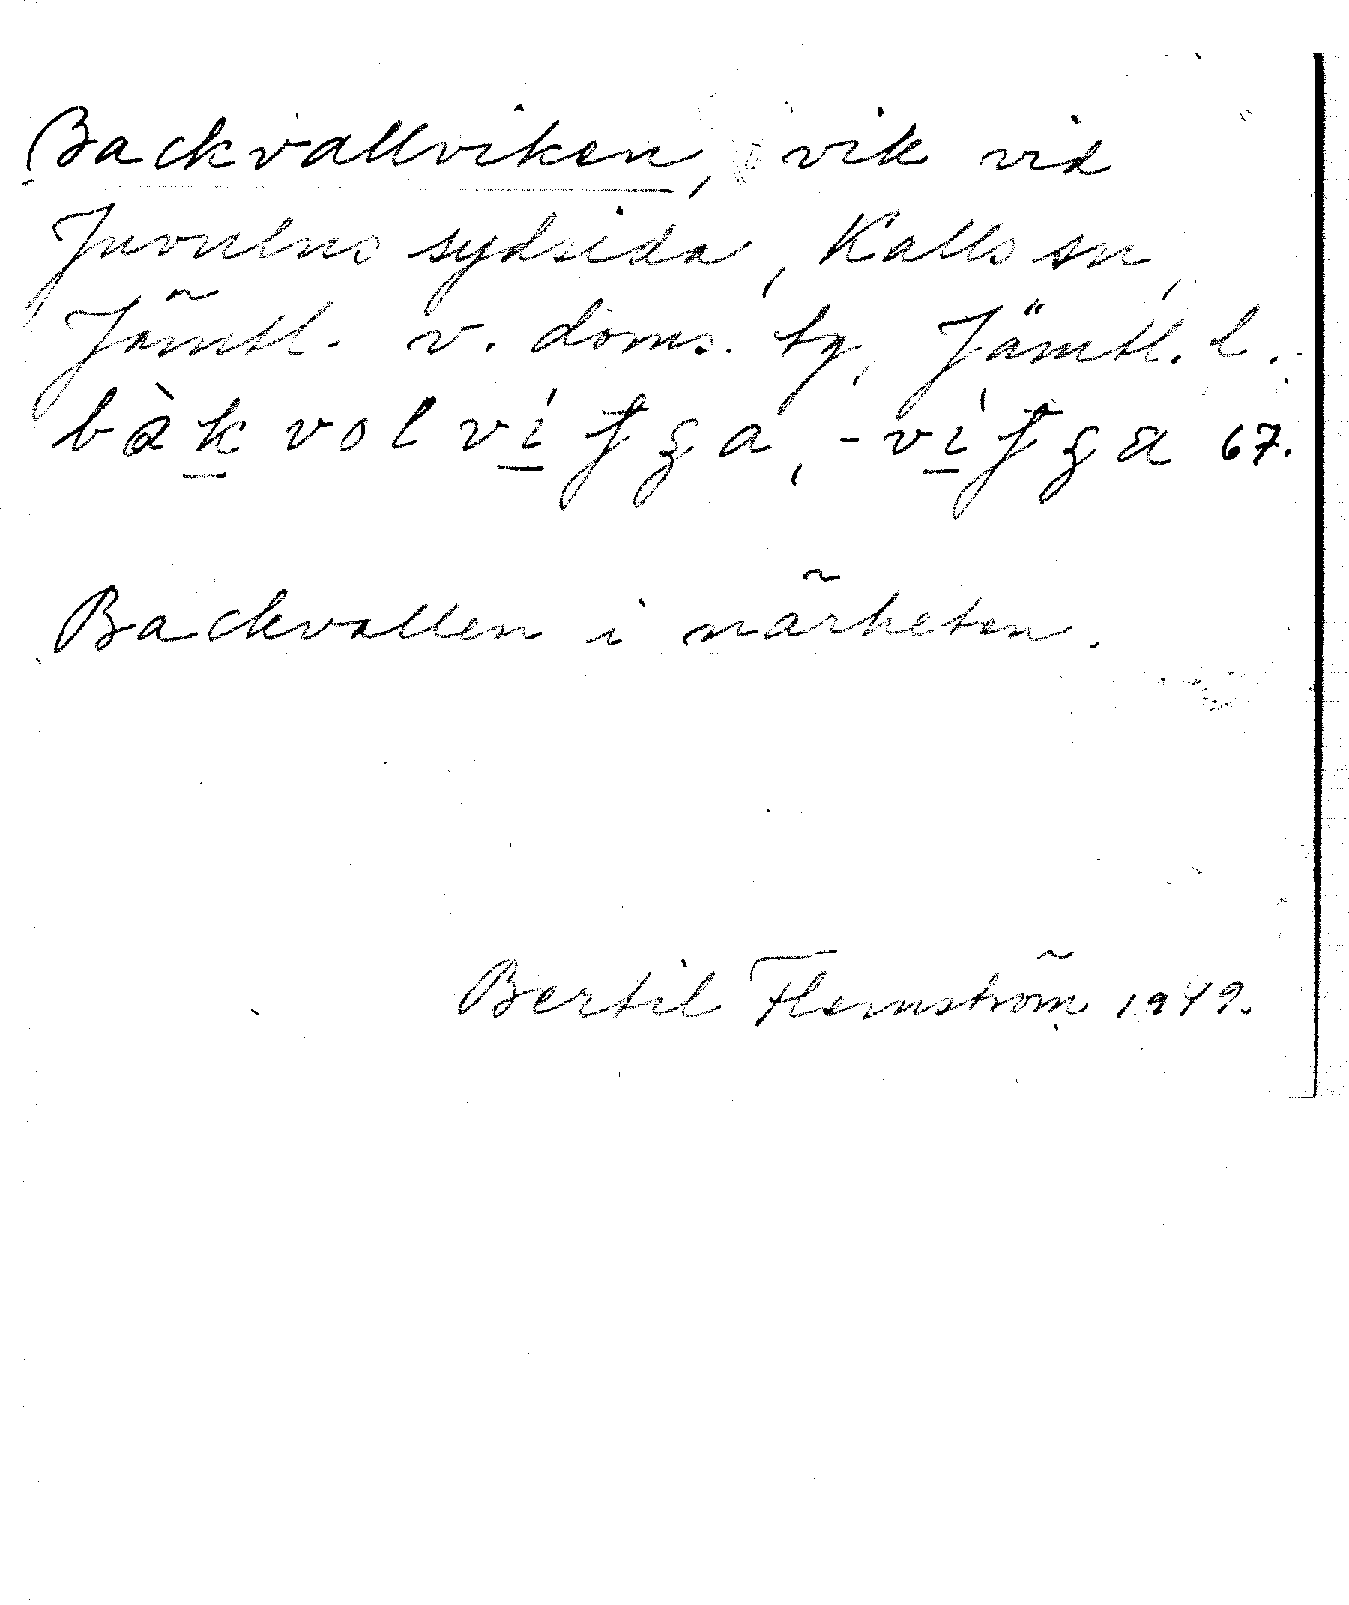 Backvallviken, vik vid
Juvulns sydsida, Kalls sn,
Jämtl. v. doms. tg, Jämtl. l.
Backvallen i närheten.
Bertil Flemström 1949.